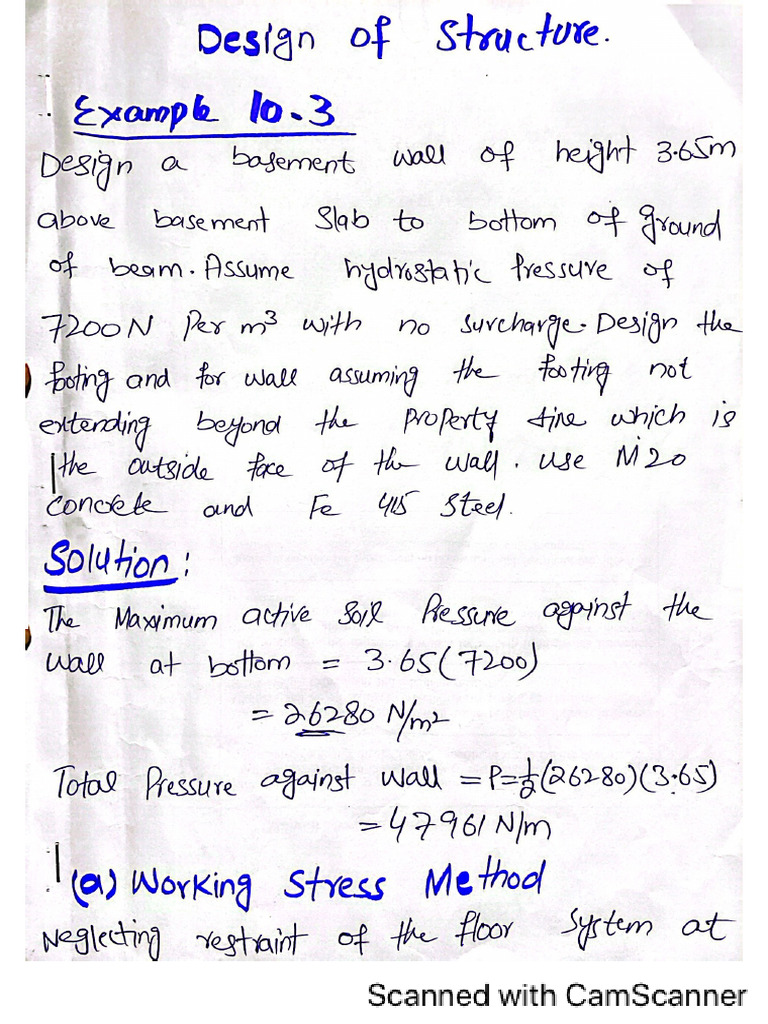 Design of Structure.
Example 10.3
Design a basement wall of height 3.65m
above basement Slab to bottom of ground
of beam. Assume hydrostatic Pressure of
7200N Per m³ with no surcharge. Design the
footing and for wall assuming the footing not
extending beyond the property line which is
the outside face of the wall. use M20
concrete and Fe 415 Steel.
Solution:
The Maximum active Soil Pressure against the
wall at bottom = 3.65(7200)
= 26280 N/m²
Total Pressure against wall = P = ½(26280)(3.65)
= 47961 N/m
(a) Working Stress Method
Neglecting restraint of the floor System at
Scanned with CamScanner